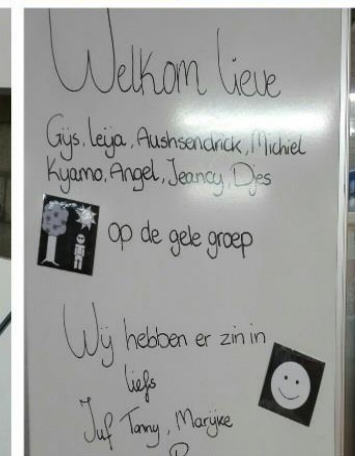 Welkom lieve
Gijs, Leija, Aushsendrick, Michiel
Kyamo, Angel, Jeancy, Djes
op de gele groep
Wij hebben er zin in
liefs
Juf Tanny, Marijke